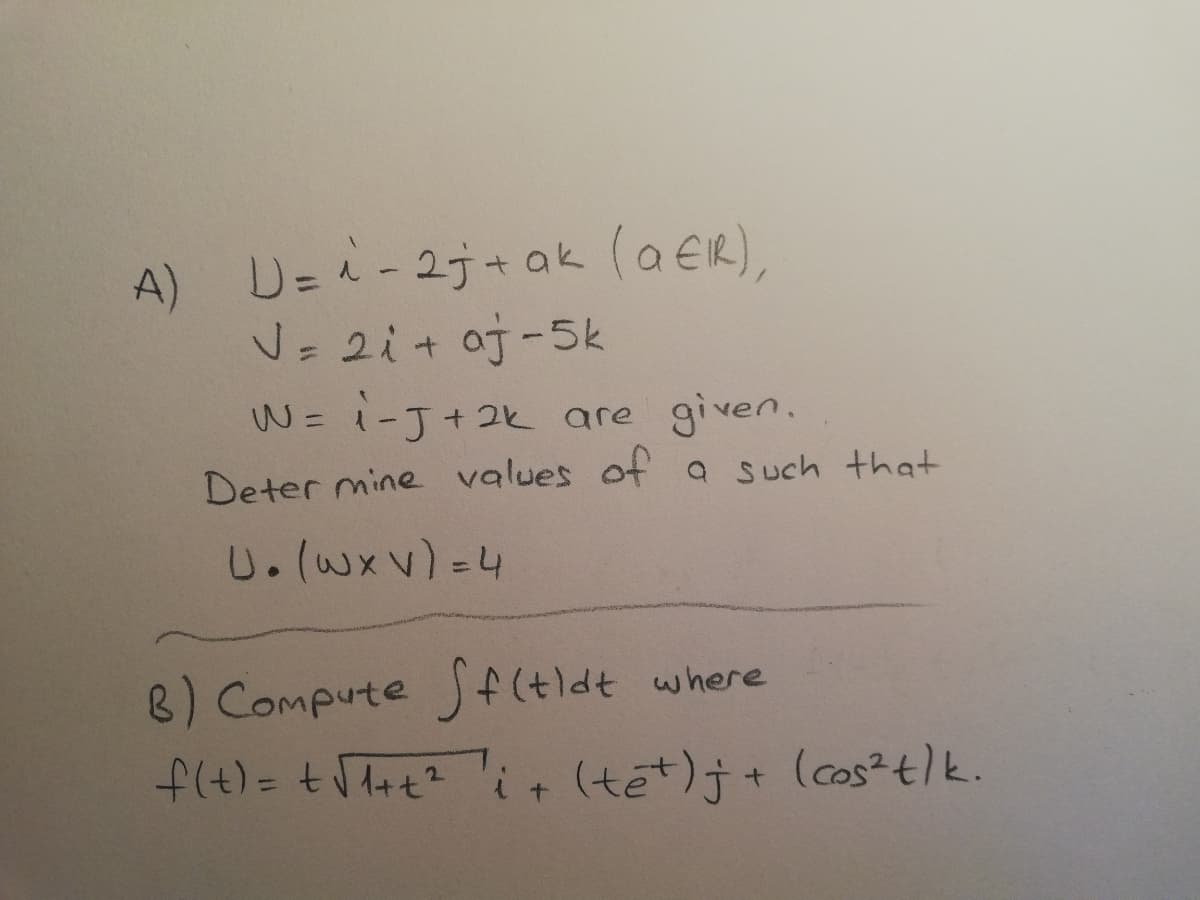 A) U = i - 2j + ak (a ∈ ℝ),
V = 2i + aj - 5k
W = i - J + 2k are given.
Determine values of a such that
U • (w x v) = 4
B) Compute ∫f(t)dt where
f(t) = t√1+t² i + (te⁻ᵗ)j + (cos²t)k.